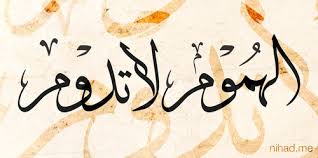 الهُمُوْم لَا تَدُوْم
nihad.me